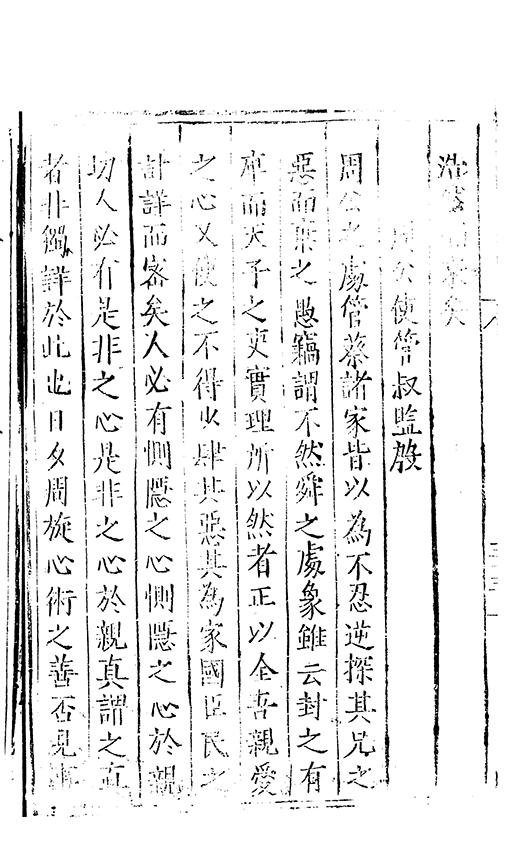 矣
周公使管叔監殷
周公之處管蔡諸家皆以為不忍逆探其兄之
惡而棄之愚竊謂不然舜之處象雖云封之有
庳而天子之吏實理所以然者正以全吾親愛
之心又使之不得以肆其惡其為家國臣民之
計詳而密矣人必有惻隱之心惻隱之心於親
切人必有是非之心是非之心於親真謂之真
者非獨詳於此也日夕周旋心術之善否見